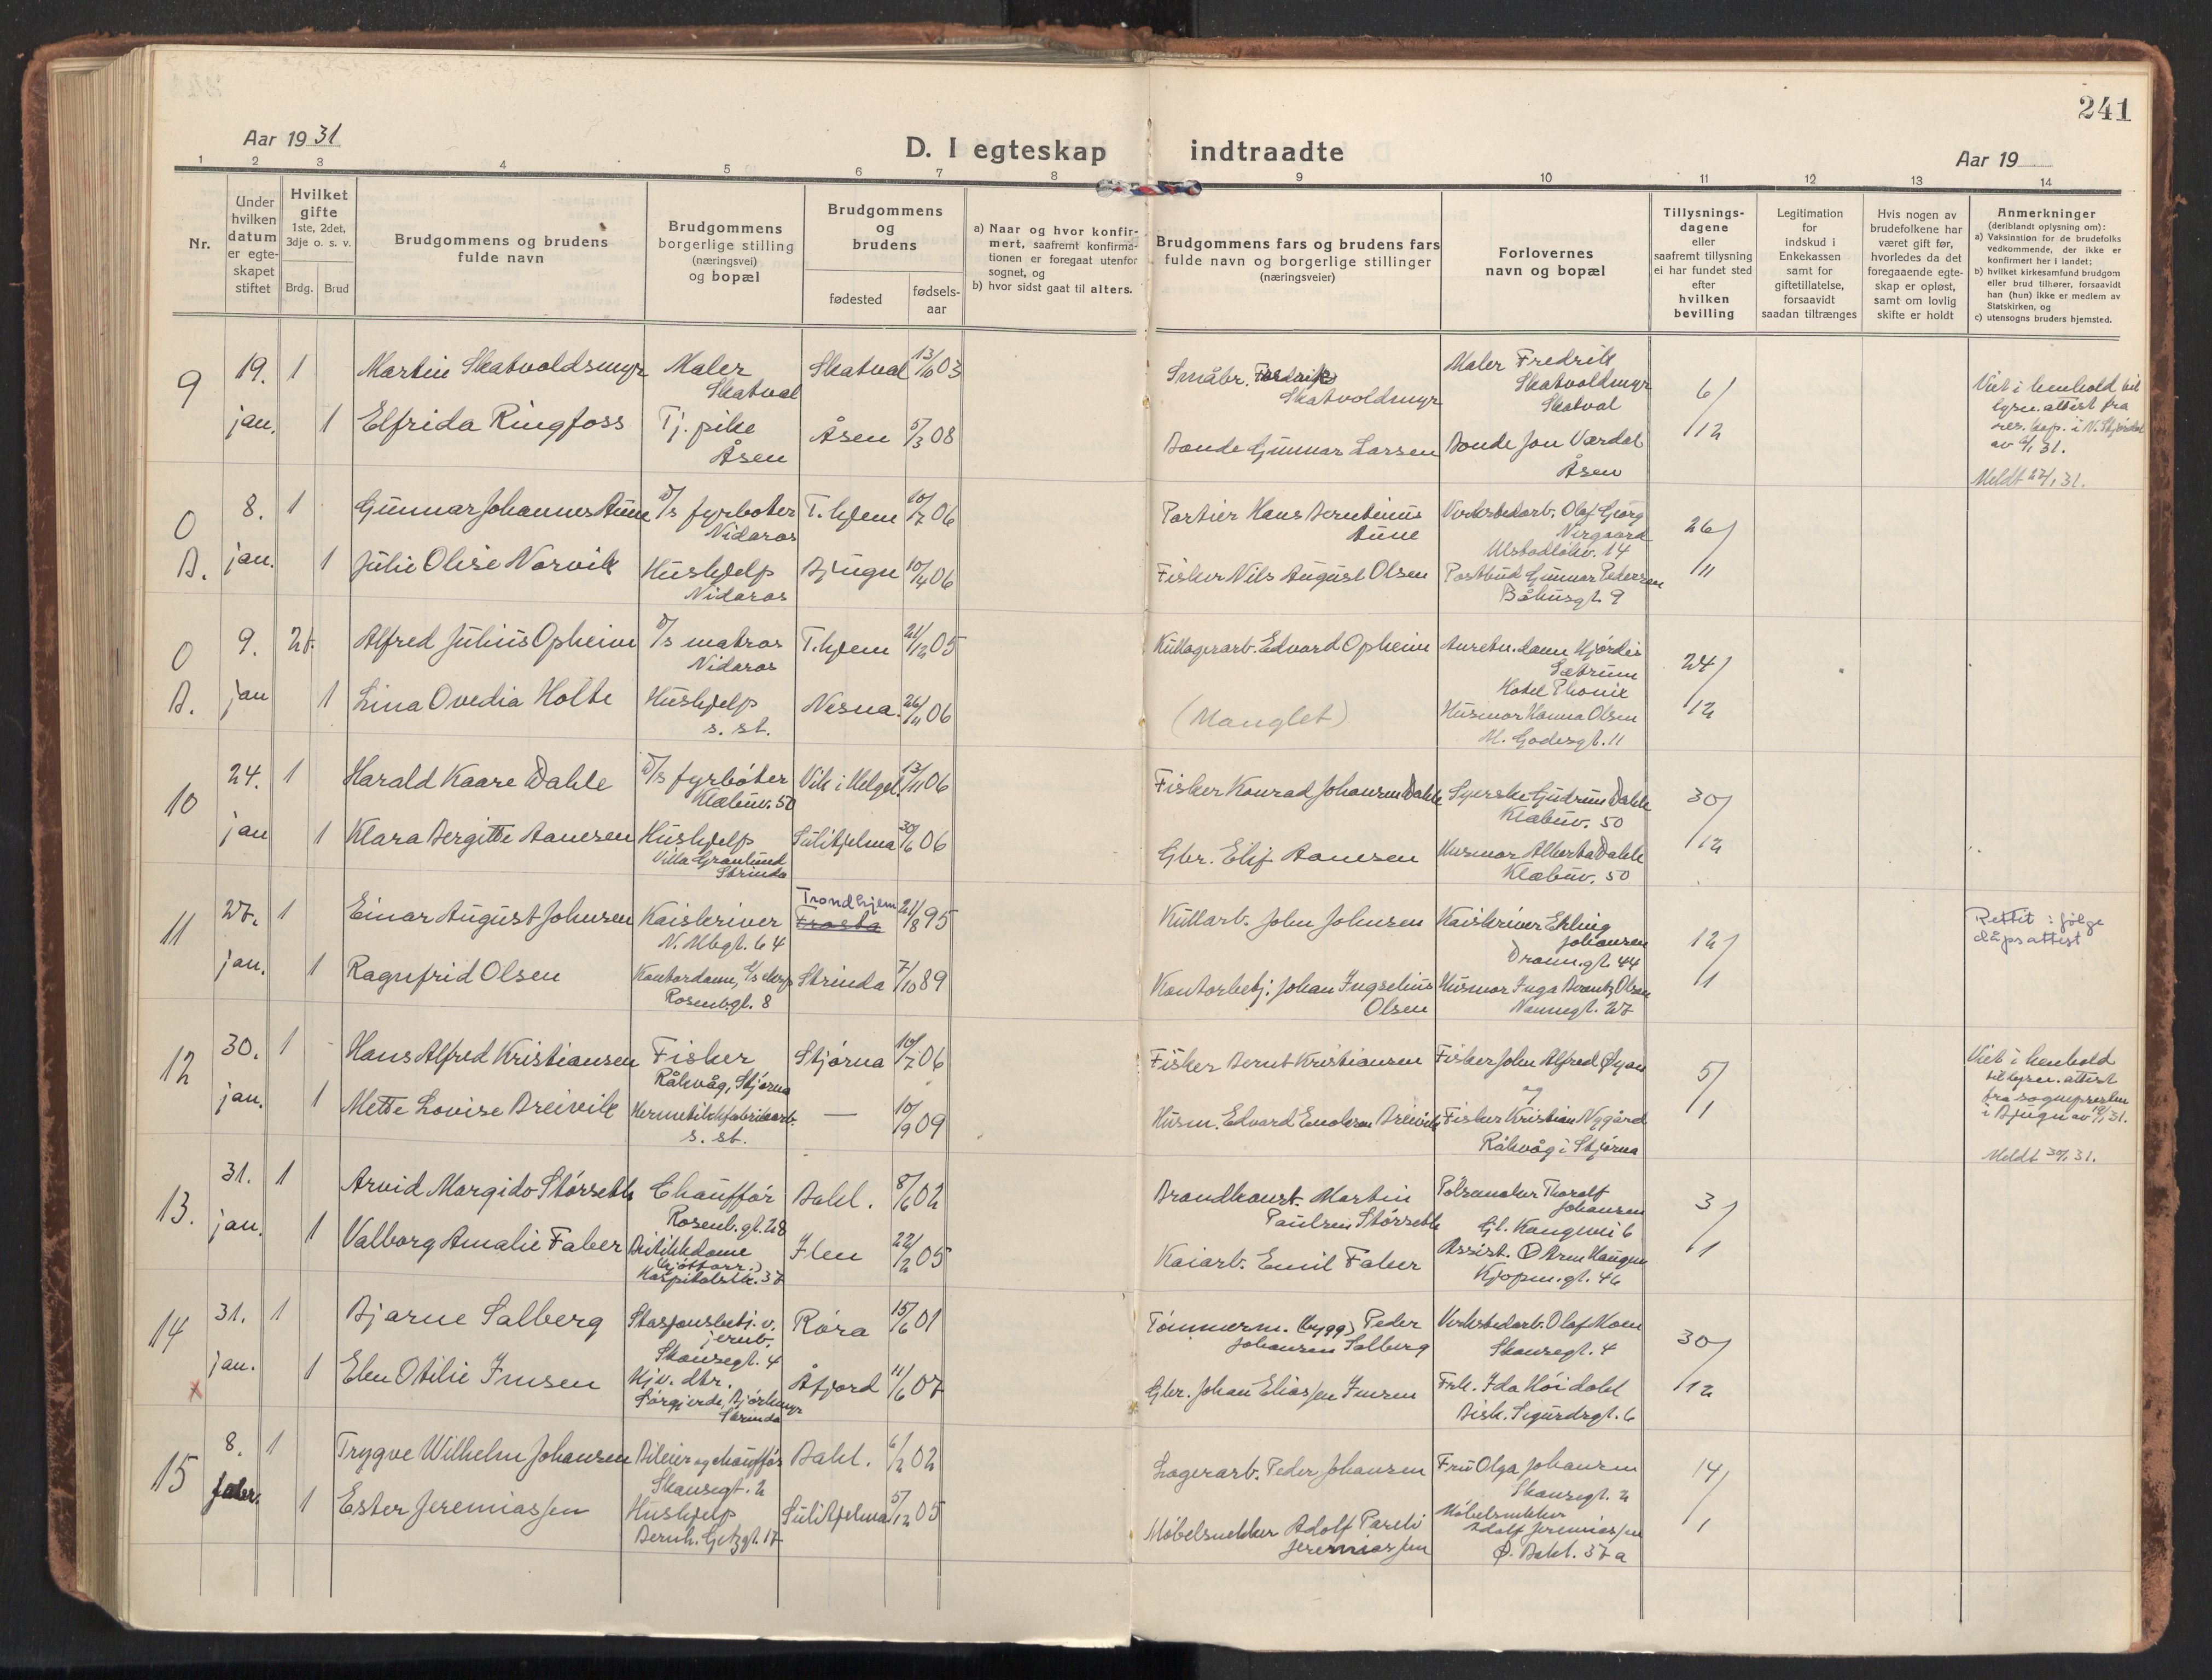 241
Aar 1931
D. I egteskap indtraadte
Aar 19
1 2 3 4 5 6 7 8 9 10 11 12 13 14
Nr.
Under hvilken datum er egte-skapet stiftet
Hvilket gifte 1ste, 2det, 3dje o. s. v.
Brdg. Brud
Brudgommens og brudens fulde navn
Brudgommens borgerlige stilling (næringsvei) og bopæl
Brudgommens og brudens
fødested
fødsels-aar
a) Naar og hvor konfir-mert, saafremt konfirma-tionen er foregaat utenfor sognet, og
b) hvor sidst gaat til alters.
Brudgommens fars og brudens fars fulde navn og borgerlige stillinger (næringsveier)
Forlovernes navn og bopæl
Tillysnings-dagene eller saafremt tillysning ei har fundet sted efter hvilken bevilling
Legitimation for indskud i Enkekassen samt for giftetillatelse, forsaavidt saadan tiltrænges
Hvis nogen av brudefolkene har været gift før, hvorledes da det foregaaende egte-skap er opløst, samt om lovlig skifte er holdt
Anmerkninger (deriblandt oplysning om):
a) Vaksination for de brudefolks vedkommende, der ikke er konfirmert her i landet;
b) hvilket kirkesamfund brudgom eller brud tilhører, forsaavidt han (hun) ikke er medlem av Statskirken, og
c) utensogns bruders hjemsted.
9 19. jan. 1 Martin Skatvoldsmyr Maler Skatval Skatval 13/10 03 Småbr. Fredrik Skatvoldsmyr Maler Fredrik Skatvoldmyr Skatval 6/12
Viet i henhold til lysn. attest fra res. kap. i N. Stjørdal av 6/1 31.
Meldt 22/1 31.
1 Elfrida Ringfoss Tj. pike Åsen Åsen 5/3 08 Bonde Gunnar Larsen Bonde Jon Værdal Åsen
O B. 8. jan. 1 Gunnar Johannes Aune D/s fyrbøter Nidaros T.hjem 10/7 06 Portier Hans Berntinius Aune Verkstedarb. Olaf Georg Nirgaard Ulstadløkv. 14 26/11
1 Julie Olise Norvik Hushjelp Nidaros Bjugn 10/4 06 Fisker Nils August Olsen Postbud Gunnar Pedersen Båhusgt. 9
O B. 9. jan 2t. Alfred Julius Opheim D/s matros Nidaros T.hjem 21/12 05 Kullagerarb. Edvard Opheim Hjørdis Sætrum Hotel Phønix 24/12
1 Lina Ovedia Holte Hushjelp s. st. Nesna 26/11 06 (Manglet) Husmor Hanna Olsen M. Godesgt. 11
10 24. jan 1 Harald Kaare Dahle D/s fyrbøter Klæbuv. 50 Vik i Helgel. 13/11 06 Fisker Konrad Johansen Dahle Syerske Gudrun Dahle Klæbuv. 50 30/12
1 Klara Bergitte Aanesen Hushjelp Villa Granlund Strinda Sulitjelma 30/6 06 Gbr. Elif Aanesen Husmor Alberta Dahle Klæbuv. 50
11 27. jan. 1 Einar August Johnsen Kaiskriver N. Ilbgt. 64 Trondhjem Frosta 21/8 95 Kullarb. John Johnsen Kaiskriver Erling Johansen Dronn.gt. 44 12/1
Rettet i følge dåpsattest
1 Ragnfrid Olsen Kontordame, Rosenb.gt. 8 Strinda 7/10 89 Kontorbetj. Johan Ingselius Olsen Husmor Inga Olsen Nannegt. 27
12 30. jan. 1 Hans Alfred Kristiansen Fisker Råkvåg, Stjørna Stjørna 10/7 06 Fisker Bernt Kristiansen Fisker John Alfred Øyan og 5/1
Viet i henhold til lysn. attest fra sognepresten i Bjugn av 19/1 31.
Meldt 30/1 31.
1 Mette Lovise Breivik Hermetikkfabrikarb. s. st. — 10/9 09 Husm. Edvard Enoksen Breivik Fisker Kristian Nygård Råkvåg i Stjørna
13. 31. jan. 1 Arvid Margido Størseth Chauffør Rosenb.gt. 28 Bakl. 8/6 02 Brandkonst. Martin Paulsen Størseth Pølsemaker Thoralf Johansen Gl. Kongevei 6 3/1
1 Valborg Amalie Faber Butikkdame (kjøttforr.) Hospitalsl. 37 Ilen 22/2 05 Kaiarb. Emil Faber Assist. Arne Haugen Kjøpm.gt. 46
14 31. jan. 1 Bjarne Salberg Stasjonsbetj. v. jernb. Skansegt. 4 Røra 15/6 01 Tømmerm. (bygg) Peder Johansen Salberg Verkstedarb. Olaf Moen Skansegt. 4 30/12
x 1 Elen Otilie Imsen Hjv. dtr. Sørgjerde, Bjørkmyr Strinda Åfjord 11/6 07 Gbr. Johan Eliassen Imsen Frk. Ida Høidahl Bisk. Sigurdsgt. 6
15 8. febr. 1 Trygve Wilhelm Johansen Bileier og chauffør Skansegt. 2 Bakl. 6/2 02 Lagerarb. Peder Johansen Fru Olga Johansen Skansegt. 2 14/1
1 Ester Jeremiassen Hushjelp Bernh. Getzgt. 17 Sulitjelma 5/12 05 Møbelsnekker Adolf Pareli Jeremiassen Møbelsnekker Adolf Jeremiassen Ø. Bakl. 37 a